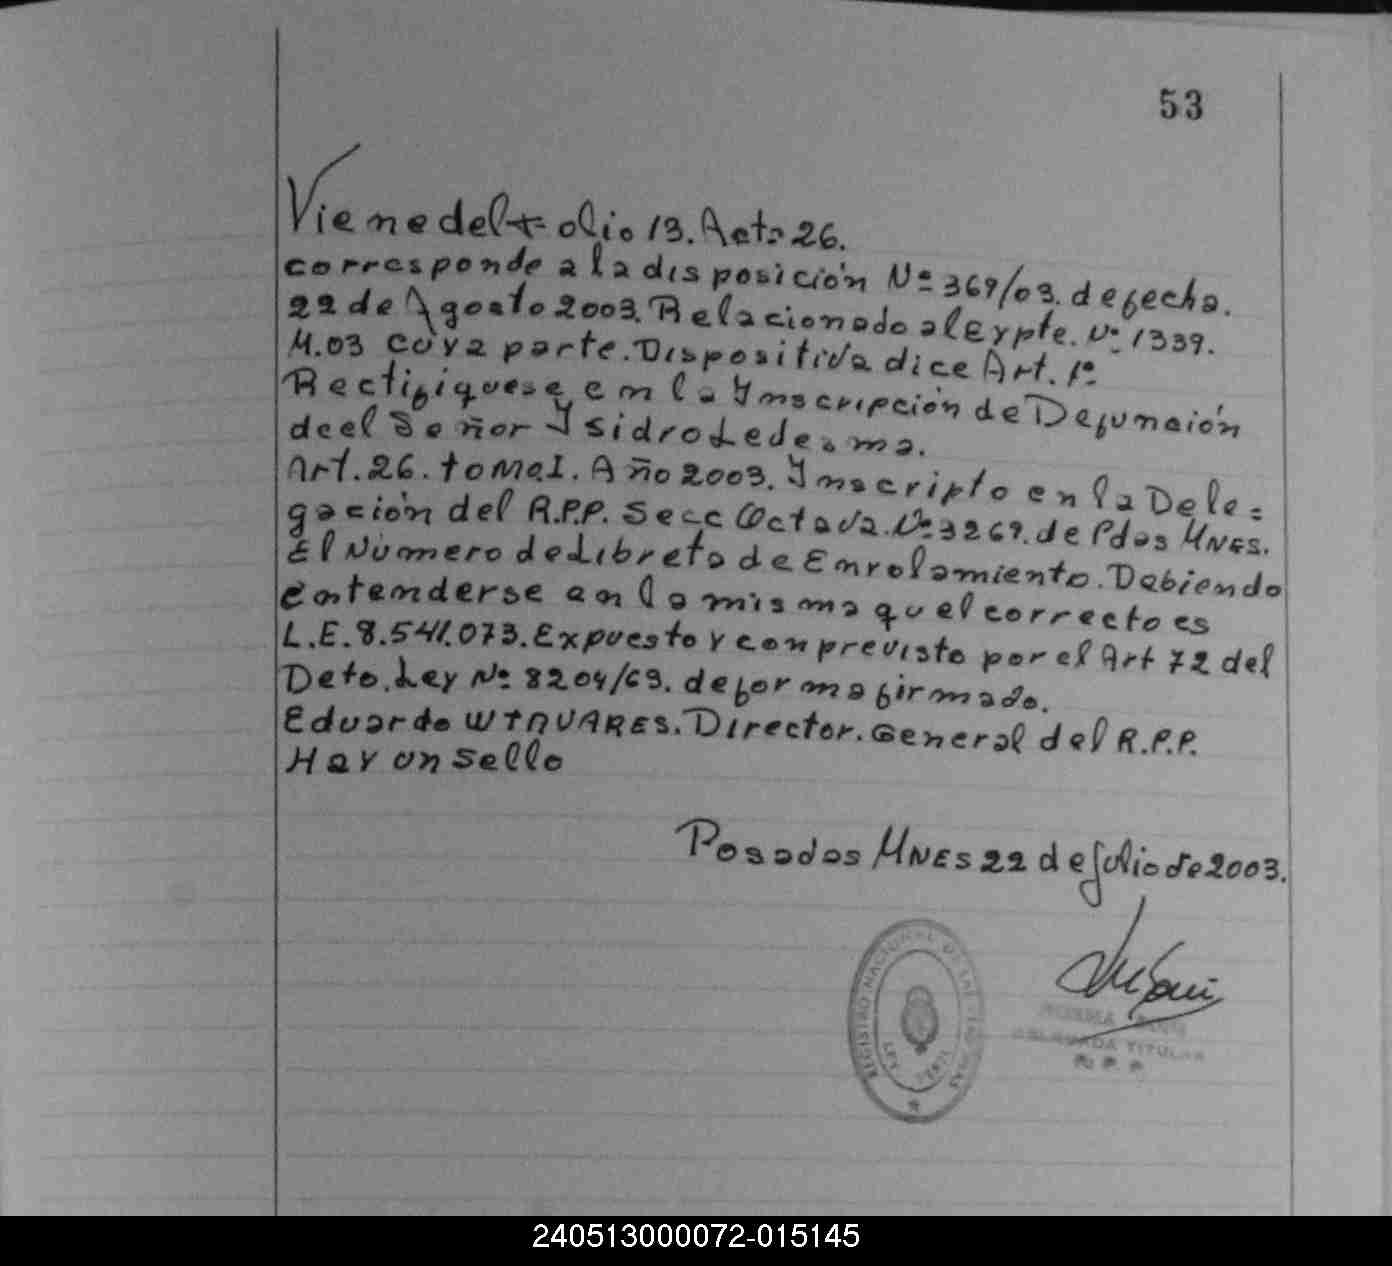 53
Viene del folio 13. Acta 26.
corresponde a la disposición Nº 369/03. de fecha.
22 de Agosto 2003. Relacionado al expte. Nº 1339.
M.03 cuya parte. Dispositiva dice Art. 1º
Rectifiquese en la Inscripción de Defunción
de el Señor Isidro Ledesma.
Art. 26. tomo I. Año 2003. Inscripto en la Dele=
gación del R.P.P. Secc Octava. Nº 3269. de Pdas MNES.
El Número de Libreta de Enrolamiento. Debiendo
entenderse en la misma que el correcto es
L.E. 8.541.073. Expuesto y con previsto por el Art 72 del
Deto. Ley Nº 8204/63. de forma firmado.
Eduardo Director. General del R.P.P.
Hay un Sello
Posadas MNES 22 de Julio de 2003.
REGISTRO NACIONAL DE LAS PERSONAS
LEY
NORMA
DELEGADA TITULAR
R. P. P.
240513000072-015145